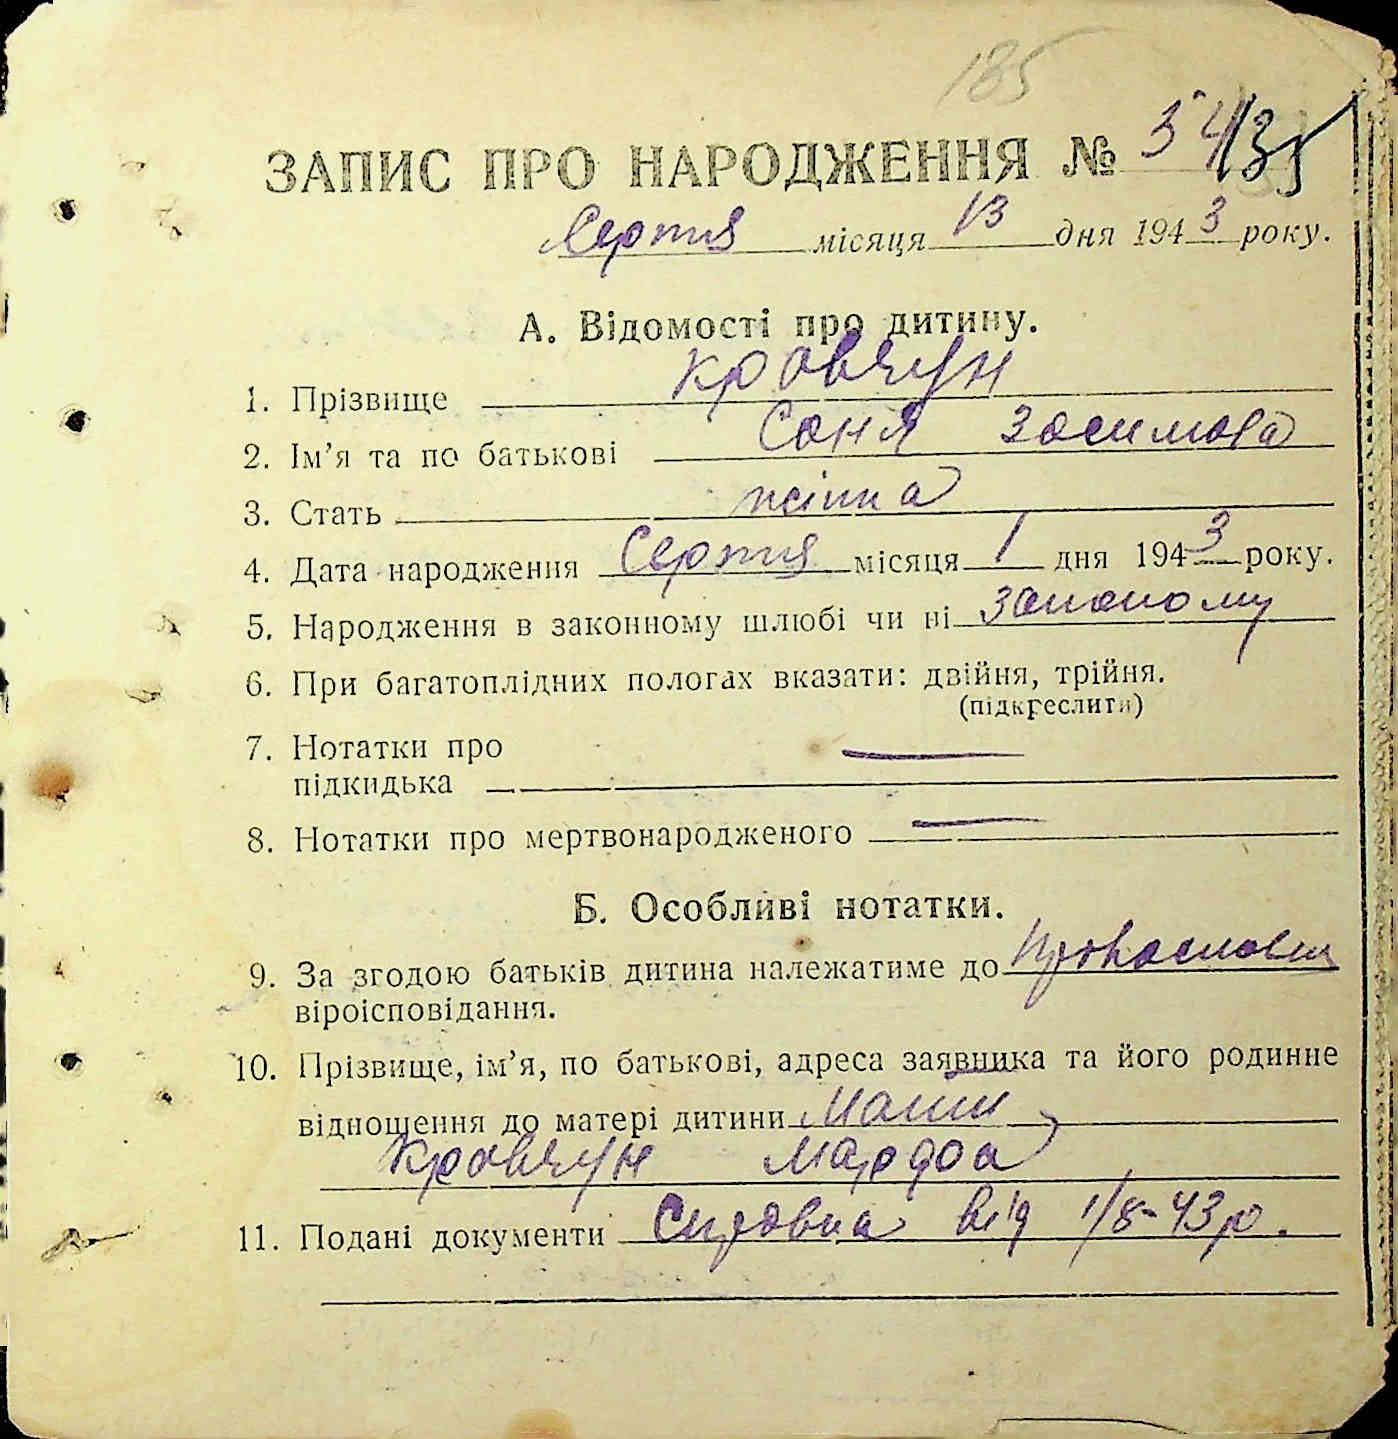 185
ЗАПИС ПРО НАРОДЖЕННЯ № 34/35
Серпня місяця 13 дня 1943 року.
А. Відомості про дитину.
1. Прізвище Кравчун
2. Ім’я та по батькові Соня Зосимова
3. Стать жінка
4. Дата народження Серпня місяця 1 дня 1943 року.
5. Народження в законному шлюбі чи ні законому
6. При багатоплідних пологах вказати: двійня, трійня.
(підкреслити)
7. Нотатки про
підкидька —
8. Нотатки про мертвонародженого —
Б. Особливі нотатки.
9. За згодою батьків дитина належатиме до
віроісповідання.
10. Прізвище, ім’я, по батькові, адреса заявника та його родинне
відношення до матері дитини Мати
Кравчун
11. Подані документи Справка від 1/8-43р.